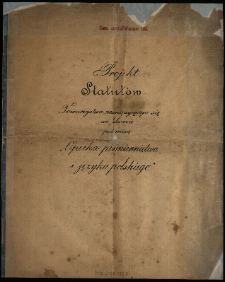 Projekt
Statutów
Towarzystwa zawiązującego się
we Lwowie
pod nazwą
"Opieka piśmiennictwa
i języka polskiego"